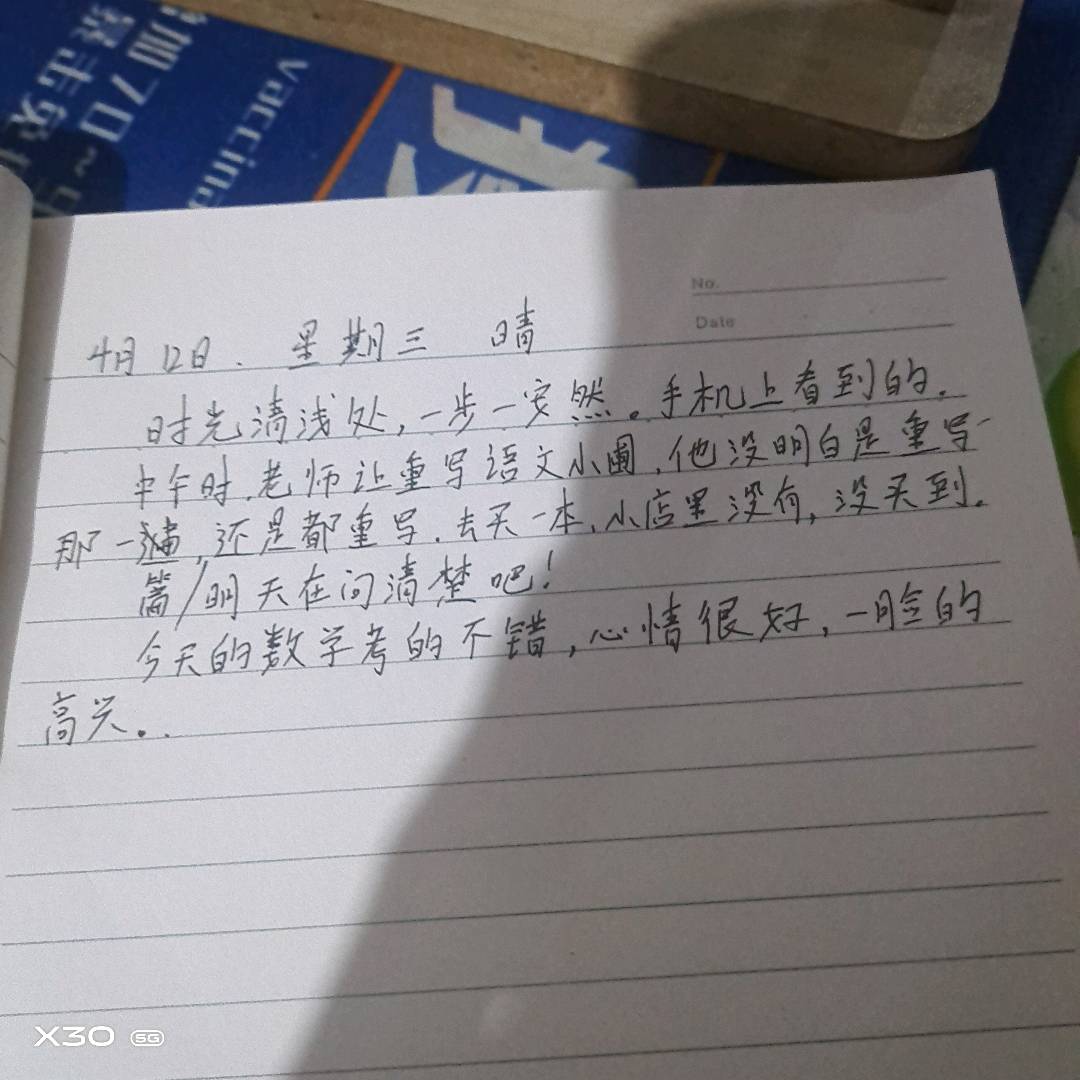 加70~
vaccina
No.
Date
4月12日. 星期三 晴
时光清浅处,一步一安然。手机上看到的.
中午时.老师让重写语文小圃,他没明白是重写
那一遍,还是都重写.去买一本,小店里没有,没买到.
篇/明天在问清楚吧!
今天的数学考的不错,心情很好,一脸的
高兴..
X30 5G